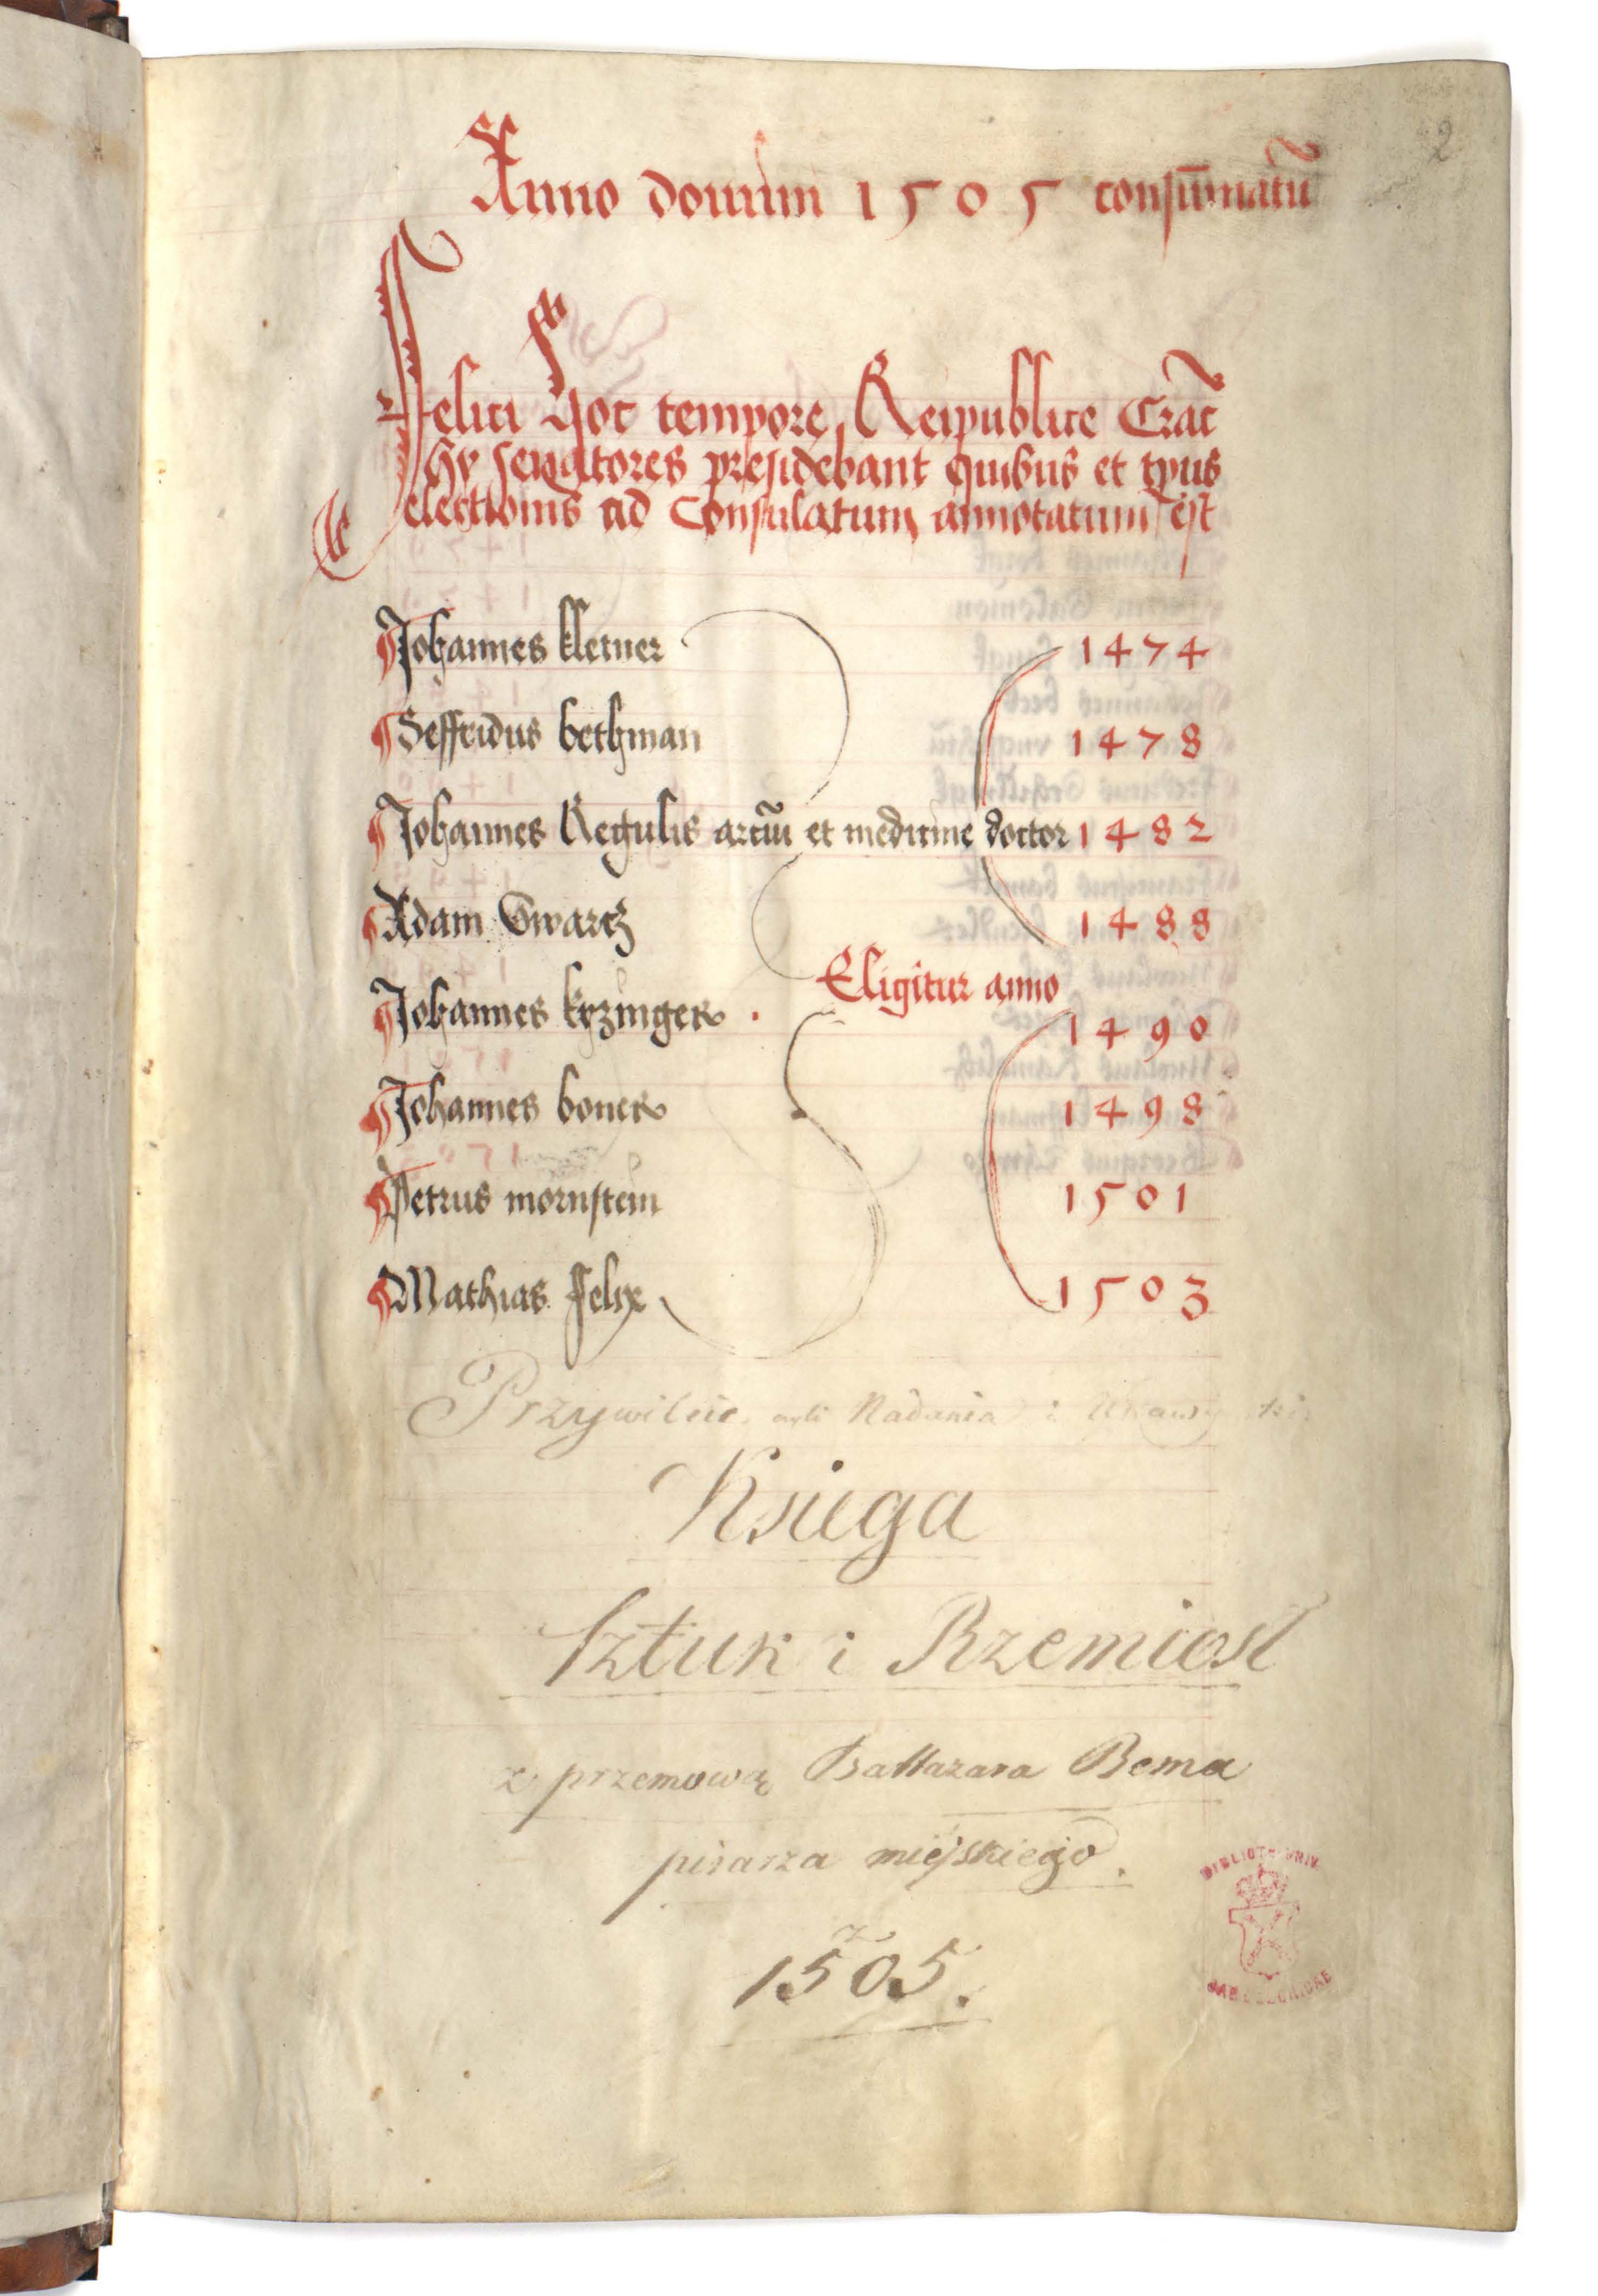 2
Anno domini 1505 consūmatū
Felici hoc tempore Reipublice Crac̄
Hy senatores presidebant quibus et tpus
electionis ad Consulatum annotatum est
Johannes kletner 1474
Seffridus bethman 1478
Johannes Regulis arciū et medicine doctor 1482
Adam Swarcz 1488
Eligitur anno
Johannes kyzinger 1490
Johannes boner 1498
Petrus mornstein 1501
Mathias felix 1503
Przywileie, czyli Nadania i
Księga
Sztuk i Rzemiosł
z przemową Baltazara Bema
pisarza miejskiego.
z
1505.
BIBLIOTH. UNIV.
JAGELLONICAE